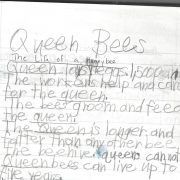 Queen Bees
The Life of a Honeybee
Queen
The work help and care
for the queen.
The bees groom and feed
the queen.
The queen is longer and
than any other bee.
The beehive queen cannot
Queen bees can live up to
five years.